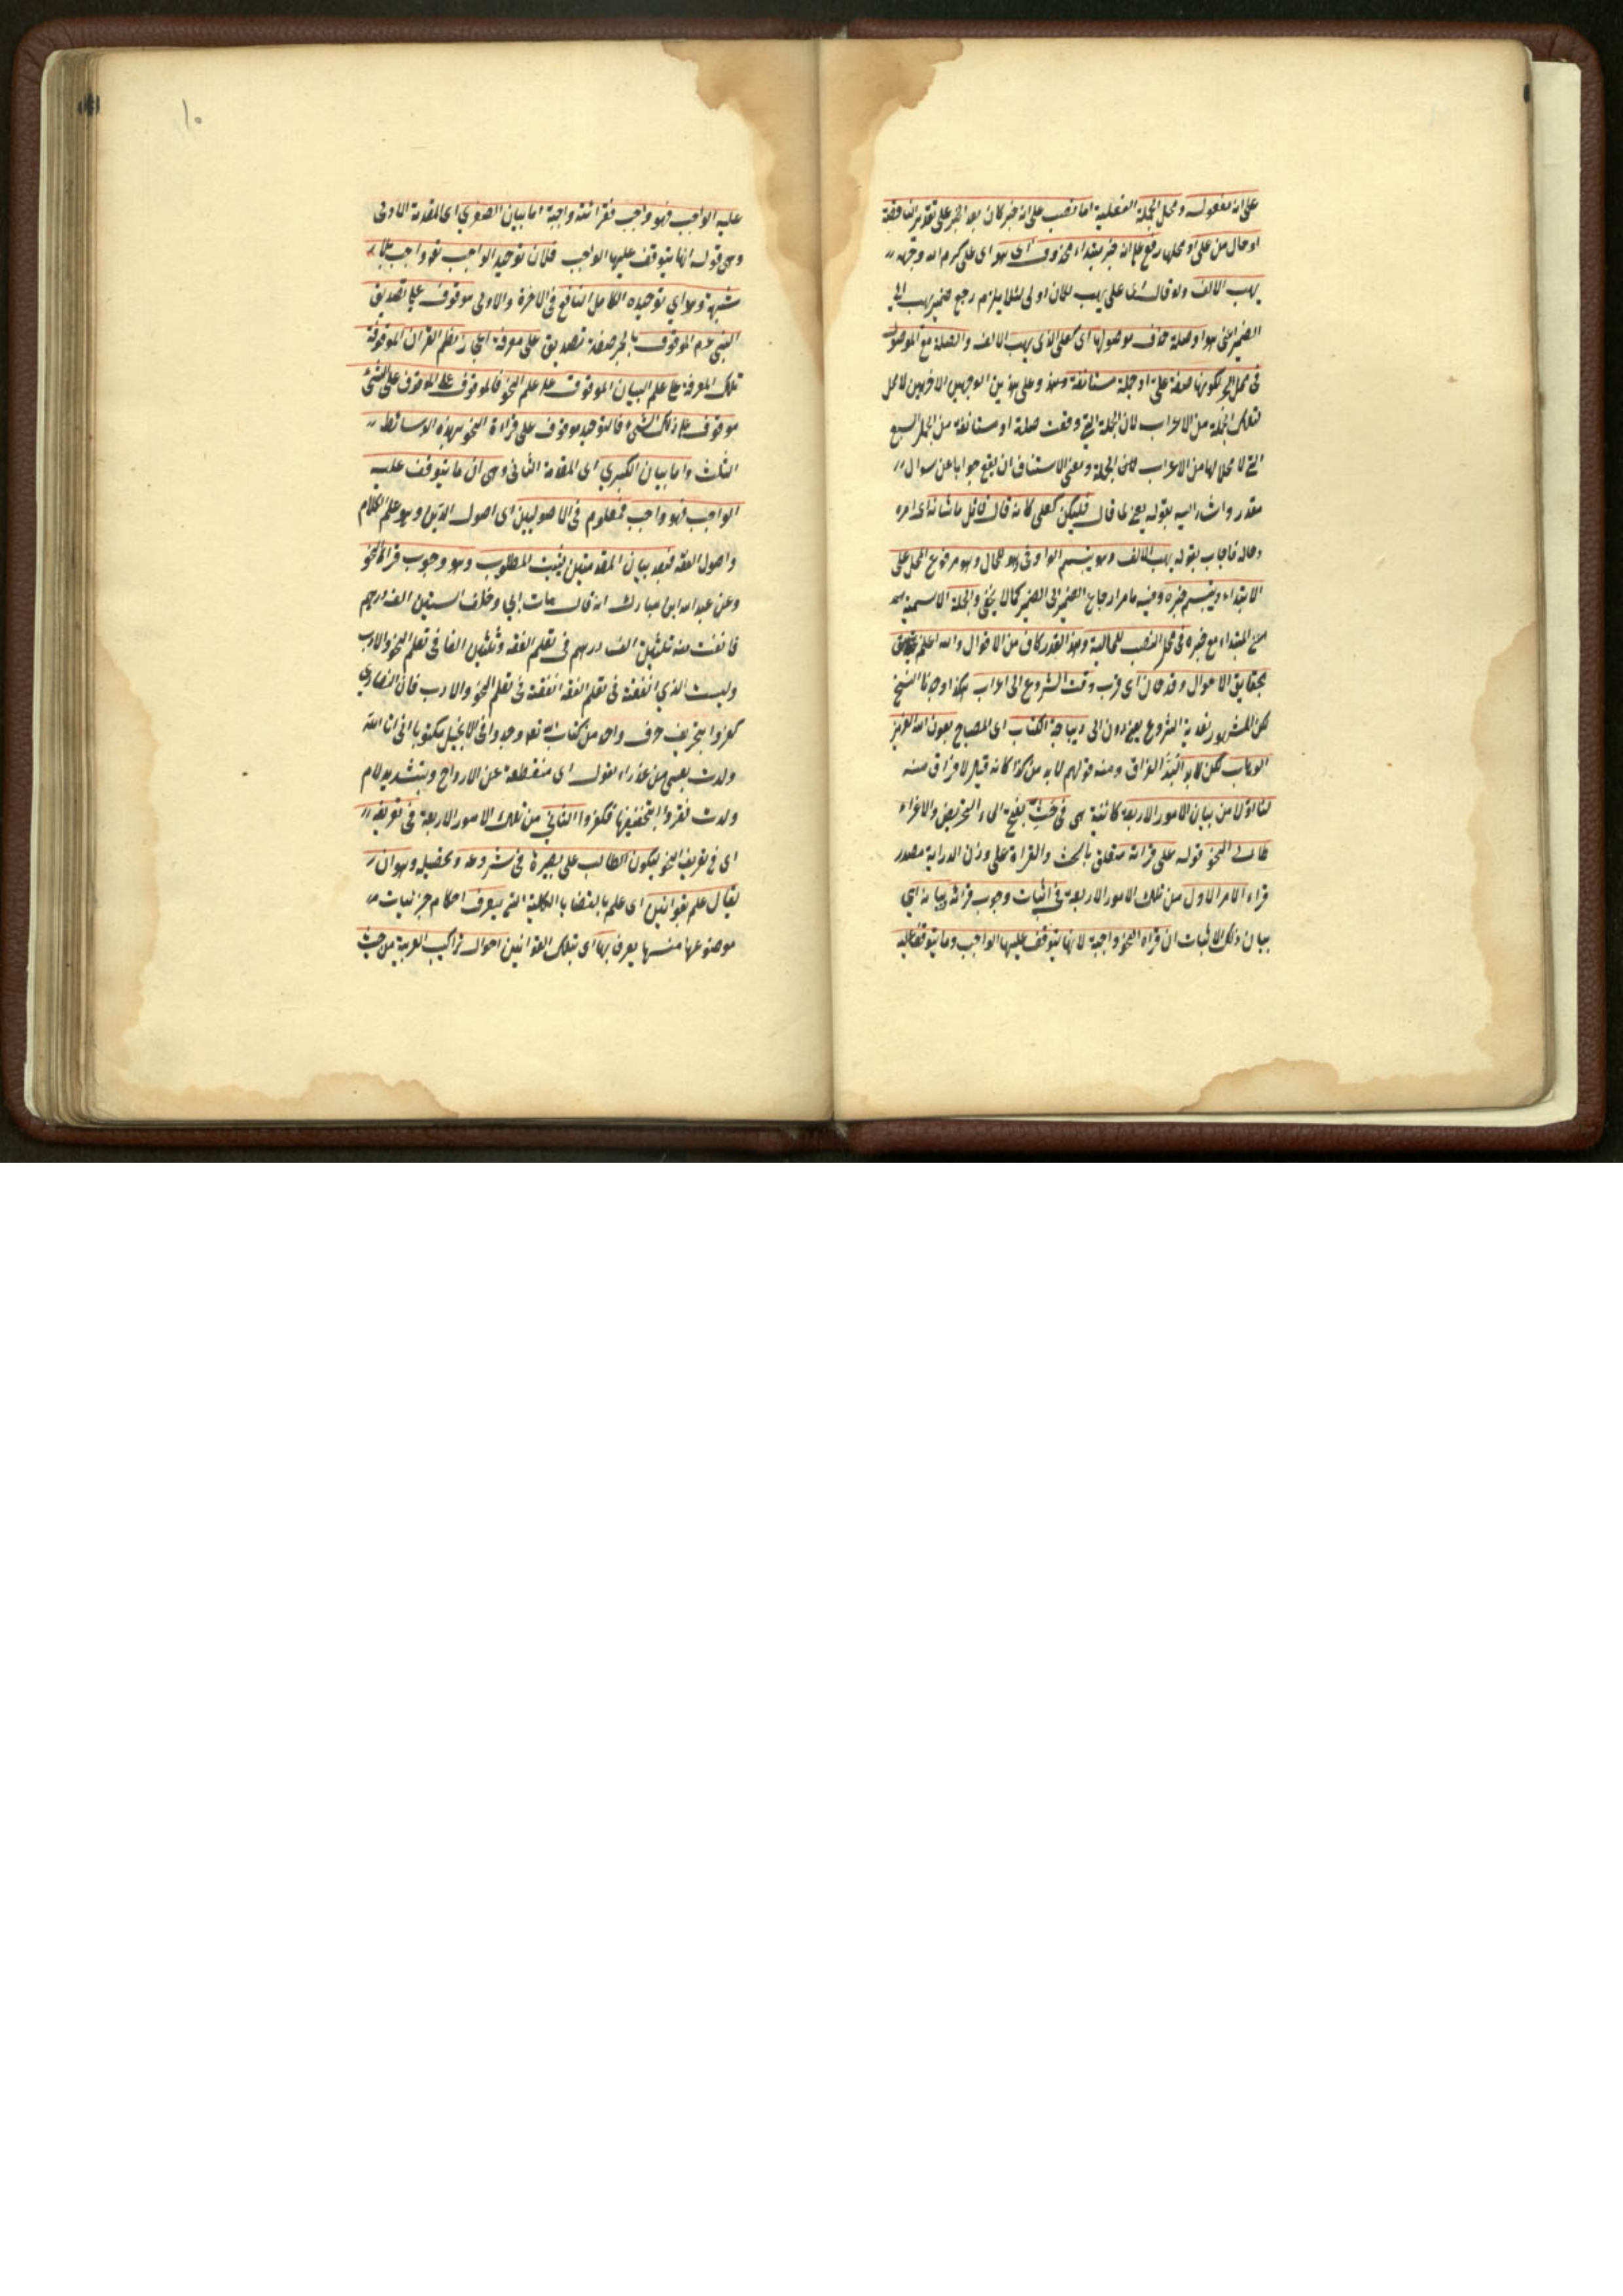 على انه مفعول ومحل الجملة الفعلية اما نصب على انه خبر كان بعد الخبر على تقدير الناقصة
او حال من على او محلها رفع على انه خبر مبتداء محذوف اى هو اى على كرم الله وجهه
يهب الالف ولو قال اى على يهب لكان اولى لئلا يلزم رجع ضمير يهب الى
الضمير اعنى هو او صلة حذف موصولها اى كعلى الذى يهب الالف والصلة مع الموصول
فى محل الجر لكونها صفة على او جملة مستانفة وهذ وعلى هذين الوجهين الاخيرين لا محل
لتلك الجملة من الاعراب لان الجملة التى وقعت صلة او مستانفة من الجمل السبع
التى لا محل لها من الاعراب لانى الجملة ومعنى الاستناف ان يقع جوابا عن سوال
مقدر واشار اليه بقوله يعنى لما قال فليكن كعلى كانه قال قائل ما شانه اى امره
وحاله فاجاب بقوله يهب الالف وهو يتبسم الواو فى وهو للحال وهو مرفوع المحل على
الابتداء ويتبسم خبره وفيه ما مر ارجاع الضمير الى الضمير كما لا يخفى والجملة الاسمية
مع المبتداء مع خبره فى محل النصب للحالية وهذا القدر كاف من الاقوال والله اعلم
بحقايق الاحوال وقد حان اى قرب وقت الشروع الى اعراب هكذا وجدنا النسخ
لكن المشهور تعدية الشروع بعن دون الى ديباجة الكتاب اى المصباح بعون الله العزيز
الوهاب لكن لا بد البد الفراق ومنه قولهم لا بد من كذا كانه قيل لا فراق منه
لنا اولا من بيان الامور الاربعة كائنة هى فى حث بفتح الحاء التحريض والاغراء
طالب النحو قوله على قرائة متعلق بالحث والقراة على وزن الدراية مصدر
قراء الامر الاول من تلك الامور الاربعة فى اثبات وجوب قرائة بيانه اى
بيان ذلك الاثبات ان قراة النحو واجبة لانها يتوقف عليها الواجب وما يتوقف عليه
١٠
عليه الواجب فهو واجب فقرائته واجبة اما بيان الصغرى اى المقدمة الاولى
وهى قوله انها يتوقف عليها الواجب فلان توحيد الواجب تعه واجب بلا
شبهة وهو اى توحيده الكامل النافع فى الاخرة والاولى موقوف على تصديق
النبى عم الموقوف بالجر صفة تصديق على معرفة اعجاز نظم القران الموقوفة
تلك المعرفة على علم البيان الموقوف على علم النحو فالموقوف على الموقوف على الشئ
موقوف على ذلك الشئ فالتوحيد موقوف على قراءة النحو بهذه الوسائط
الثلث واما بيان الكبرى اى المقدمة الثانى وهى ان ما يتوقف عليه
الواجب فهو واجب فمعلوم فى الاصوليين اى اصول الدين وهو علم الكلام
واصول الفقه فبعد بيان المقدمتين يثبت المطلوب وهو وجوب قرائة النحو
وعن عبد الله ابن مبارك انه قال مات ابى وخلف لى ستين الف درهم
فانفقت منه ثلثين الف درهم فى تعلم الفقه وثلثين الفا فى تعلم النحو والادب
وليت الذى انفقته فى تعلم الفقه انفقته فى تعلم النحو والادب فان النصارى
كفروا بتحريف حرف واحد من كتاب الله تعه وجدوا فى الانجيل مكتوبا انى انا الله
ولدت بعيسى من عذراء بتول اى منقطعة عن الازواج وبتشديد لام
ولدت فقروا بتخفيفها فكفروا الثانى من تلك الامور الاربعة فى تعريفه
اى فى تعريف النحو ليكون الطالب على بصيرة فى شروعه وتحصيله وهو ان
يقال علم بقوانين اى علم بالقضايا الكلية التى يتعرف احكام جزئيات
موضوعها منها يعرف بها اى بتلك القوانين احوال تراكيب العربية من حيث